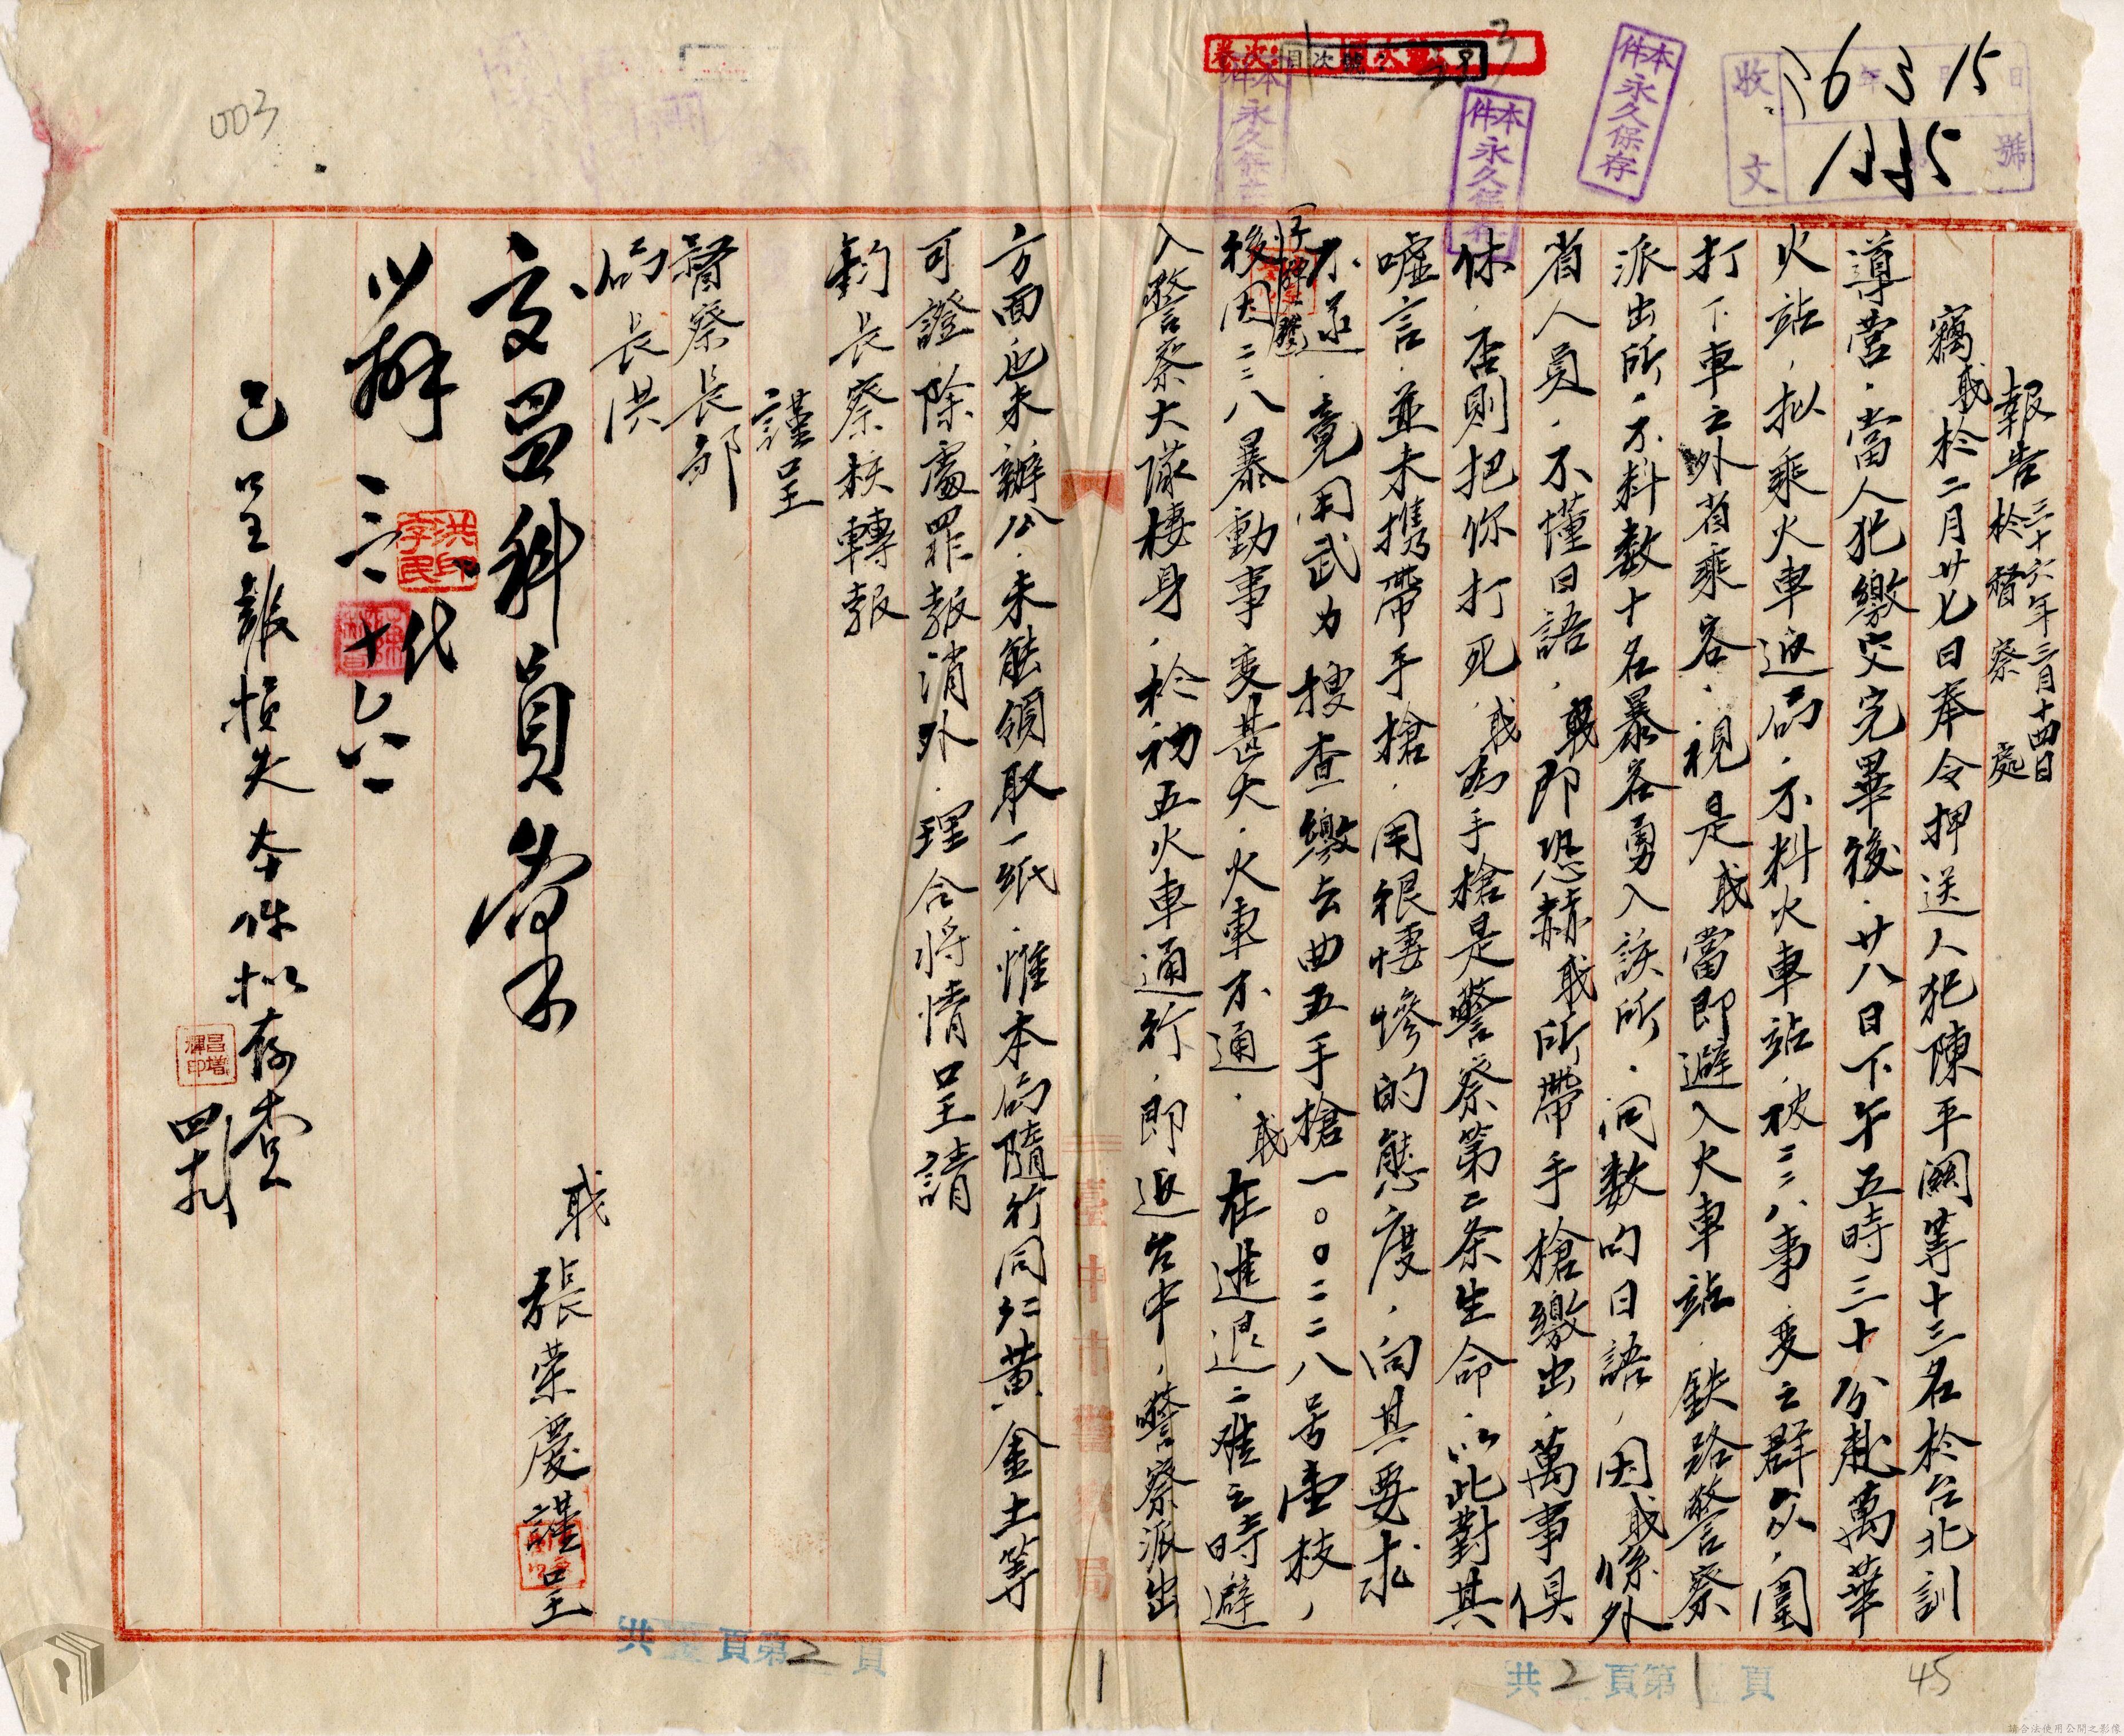 003
卷次:
目次號
3
本件永久保存
本件永久保存
本件永久保存
收文 年 月 日 號
36 3 15
報告 三十六年三月十四日
於督察處
竊職於二月廿七日奉令押送人犯陳平闊等十三名於台北訓
導營，當人犯繳交完畢後，廿八日下午五時三十分赴萬華
火站，拟乘火車返局，不料火車站，被二二八事變之群众，圍
打下車之外省乘客，視是職當即避入火車站，鉄路警察
派出所，不料数十名暴客勇入該所，问数句日語，因職係外
省人員，不懂日語，職即恐赫職所帶手槍繳出，萬事俱
休，否則把你打死，職為手槍是警察第二条生命，以此對其
嘘言，並未携帶手搶，用很悽慘的態度，向其要求
不遂，竟用武力搜查繳去曲五手槍一〇〇二二八号壹枝，
後因二二八暴動事變甚大，火車不通，職在進退二难之時避
入警察大隊棲身，於初五火車通行，即返台中，警察派出
方面也未辦公，未能領取一紙，惟本局隨行同仁黄金土等
可證，除處罪報消外，理合將情呈請
鈞長察核轉報
謹呈
督察長部
局長洪
職 張荣慶謹呈
交呂科員簽
以辦
代
洪字民印
三十六
已呈報損失本件拟存查
呂增輝印
臺中市警察局
共2頁第1頁
共 頁第2頁
1
45
請合法使用公開之影像